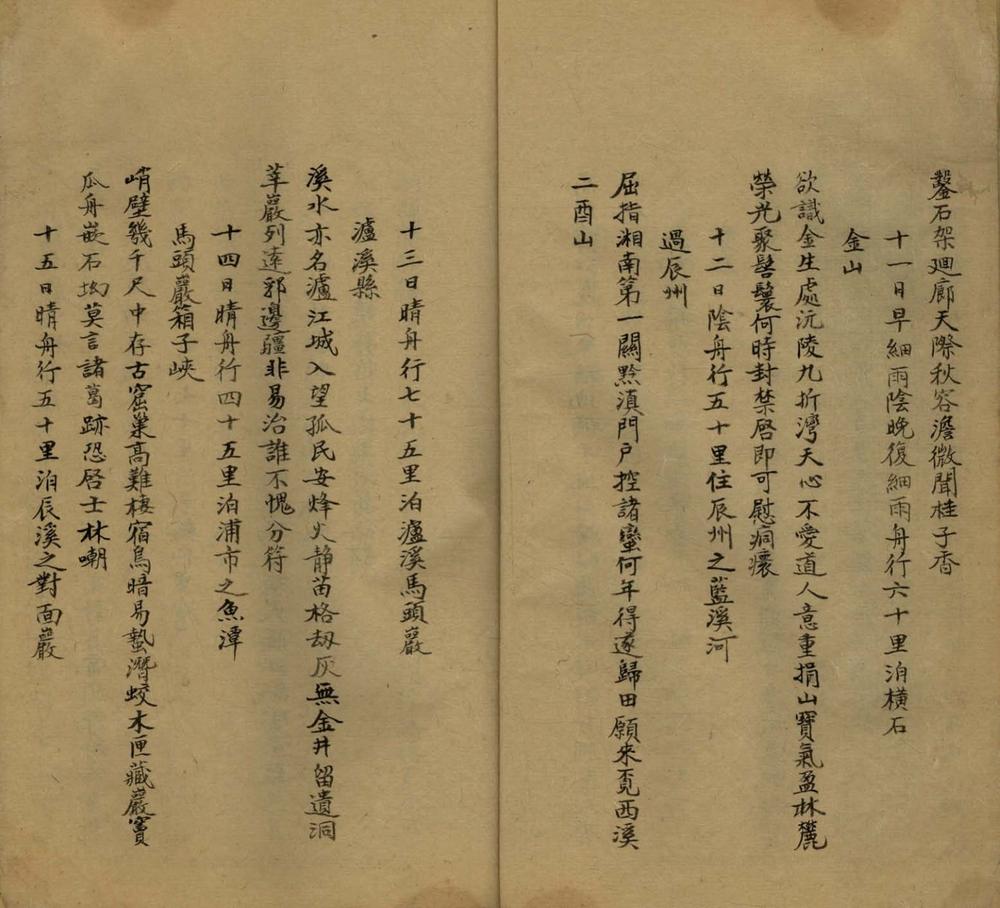 鑿石架廻廊天際秋容澹微聞桂子香
十一日早細雨陰晚復細雨舟行六十里泊橫石
金山
欲識金生處沅陵九折灣天心不愛道人意重捐山寶氣盈林麓
榮光聚髻鬟何時封禁啓即可慰痌瘝
十二日陰舟行五十里住辰州之藍溪河
過辰州
屈指湘南第一關黔滇門戶控諸蠻何年得遂歸田願來覓西溪
二酉山
十三日晴舟行七十五里泊瀘溪馬頭巖
瀘溪縣
溪水亦名瀘江城入望孤民安烽火靜苗格劫灰無金井留遺洞
莘巖列遠郛邊疆非易治誰不愧分符
十四日晴舟行四十五里泊浦市之魚潭
馬頭巖箱子峽
峭壁幾千尺中存古窟巢高難棲宿鳥暗易蟄潛蛟木匣藏巖竇
瓜舟嵌石坳莫言諸葛跡恐啓士林嘲
十五日晴舟行五十里泊辰溪之對面巖